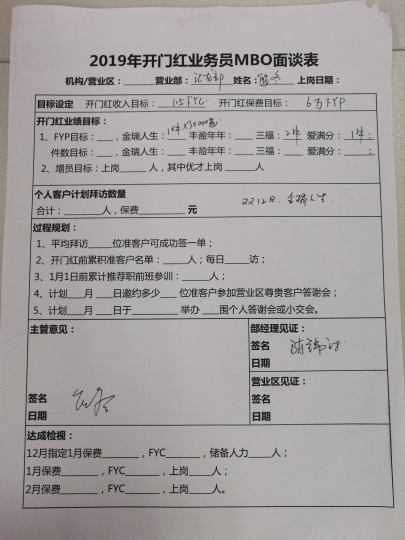 2019年开门红业务员MBO面谈表
机构/营业区：______ 营业部：______ 姓名：______ 上岗日期：
目标设定 开门红收入目标：1.5FYC 开门红保费目标：6万FYP
开门红业绩目标：
1、FYP目标：___，金瑞人生：1件×30000 丰盈年年：___ 三福：2件 爱满分：1件；
件数目标：___，金瑞人生：___ 丰盈年年：___ 三福：___ 爱满分：___；
2、增员目标：上岗______人，其中优才上岗______人
个人客户计划拜访数量
合计：______人，保费______ 元
过程规划：
1、平均拜访_____位准客户可成功签一单；
2、开门红前累积准客户名单：_____人；每日_____访；
3、1月1日前累计推荐职前班参训：_____人；
4、计划___月___日邀约多少___位准客户参加营业区尊贵客户答谢会；
5、计划___月___日于______举办___围个人答谢会或小交会。
主管意见：
签名
日期
部经理见证：
签名
日期
营业区见证：
签名
日期
达成检视：
12月指定1月保费______，FYC______，储备人力____人；
1月保费______，FYC______，上岗____人；
2月保费______，FYC______，上岗____人。